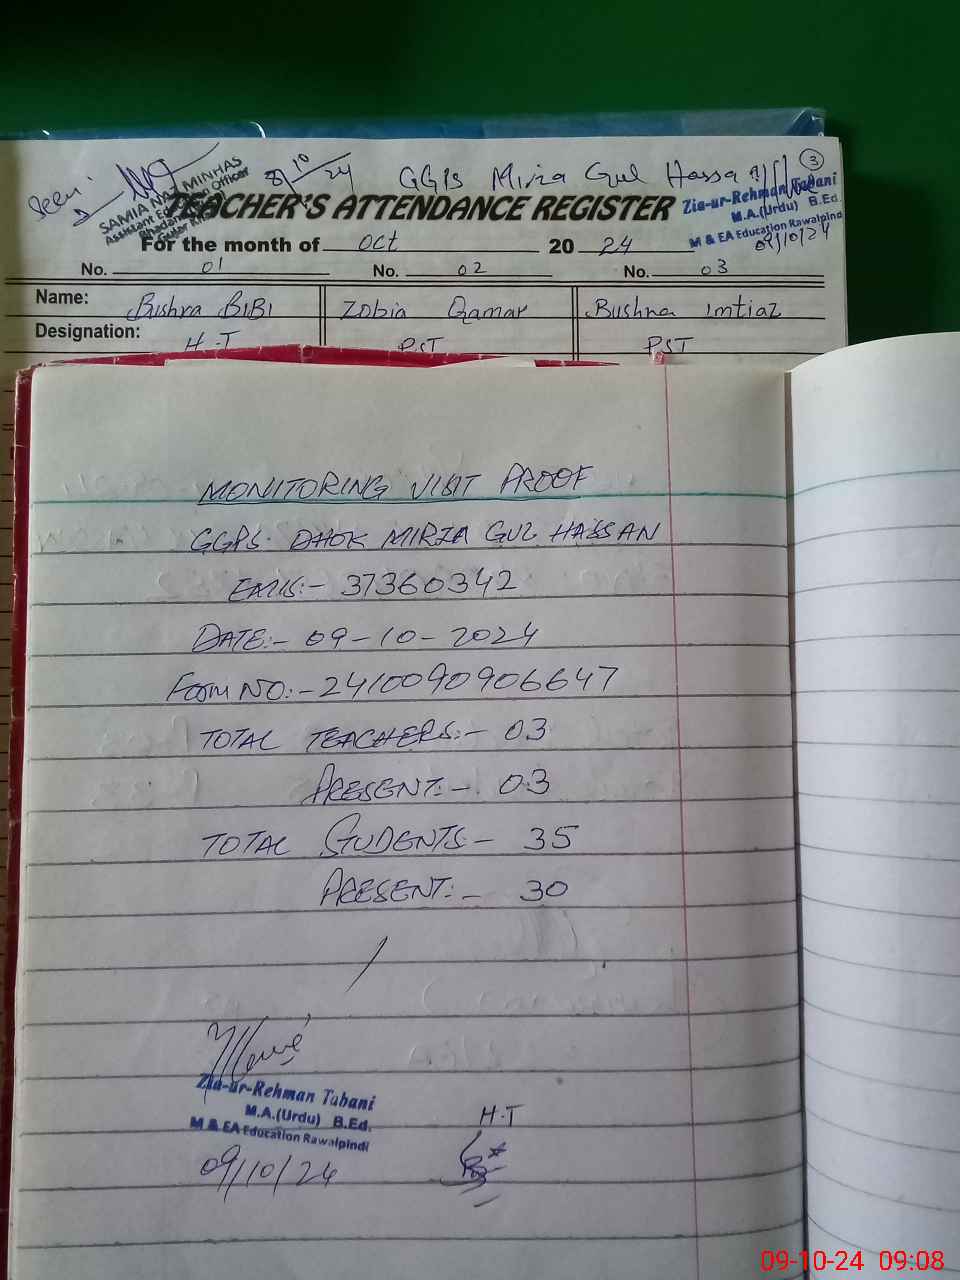 Seen
8/10/24
GGPS Mirza Gul Hassan
3
SAMIA NAZ MINHAS
Assistant Education Officer
TEACHER'S ATTENDANCE REGISTER
Zia-ur-Rehman Tabani
M.A.(Urdu) B.Ed.
M & EA Education Rawalpindi
09/10/24
For the month of Oct 2024
No. 01 No. 02 No. 03
Name: Bushra BIBI Zobia Qamar Bushra imtiaz
Designation: H.T PST PST
MONITORING VISIT PROOF
GGPS. DHOK MIRZA GUL HASSAN
EMIS:- 37360342
DATE:- 09-10-2024
Form NO:- 2410090906647
TOTAL TEACHERS:- 03
PRESENT:- 03
TOTAL STUDENTS- 35
PRESENT:- 30
Zia-ur-Rehman Tabani
M.A.(Urdu) B.Ed.
M & EA Education Rawalpindi
09/10/24
H.T
09-10-24 09:08